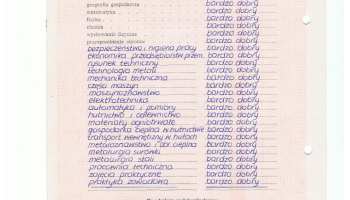 geografia gospodarcza bardzo dobry
matematyka bardzo dobry
fizyka bardzo dobry
chemia bardzo dobry
wychowanie fizyczne bardzo dobry
przysposobienie obronne bardzo dobry
bezpieczeństwo i higiena pracy bardzo dobry
ekonomika przedsiębiorstw przem. bardzo dobry
rysunek techniczny bardzo dobry
technologia metali bardzo dobry
mechanika techniczna bardzo dobry
części maszyn bardzo dobry
maszynoznawstwo bardzo dobry
elektrotechnika bardzo dobry
automatyka i pomiary bardzo dobry
hutnictwo i odlewnictwo bardzo dobry
materiały ogniotrwałe bardzo dobry
gospodarka cieplna w hutnictwie bardzo dobry
transport wewnętrzny w hutach bardzo dobry
metaloznawstwo i obr. cieplna bardzo dobry
metalurgia surówki bardzo dobry
metalurgia stali bardzo dobry
pracownia techniczna bardzo dobry
zajęcia praktyczne bardzo dobry
praktyka zawodowa bardzo dobry